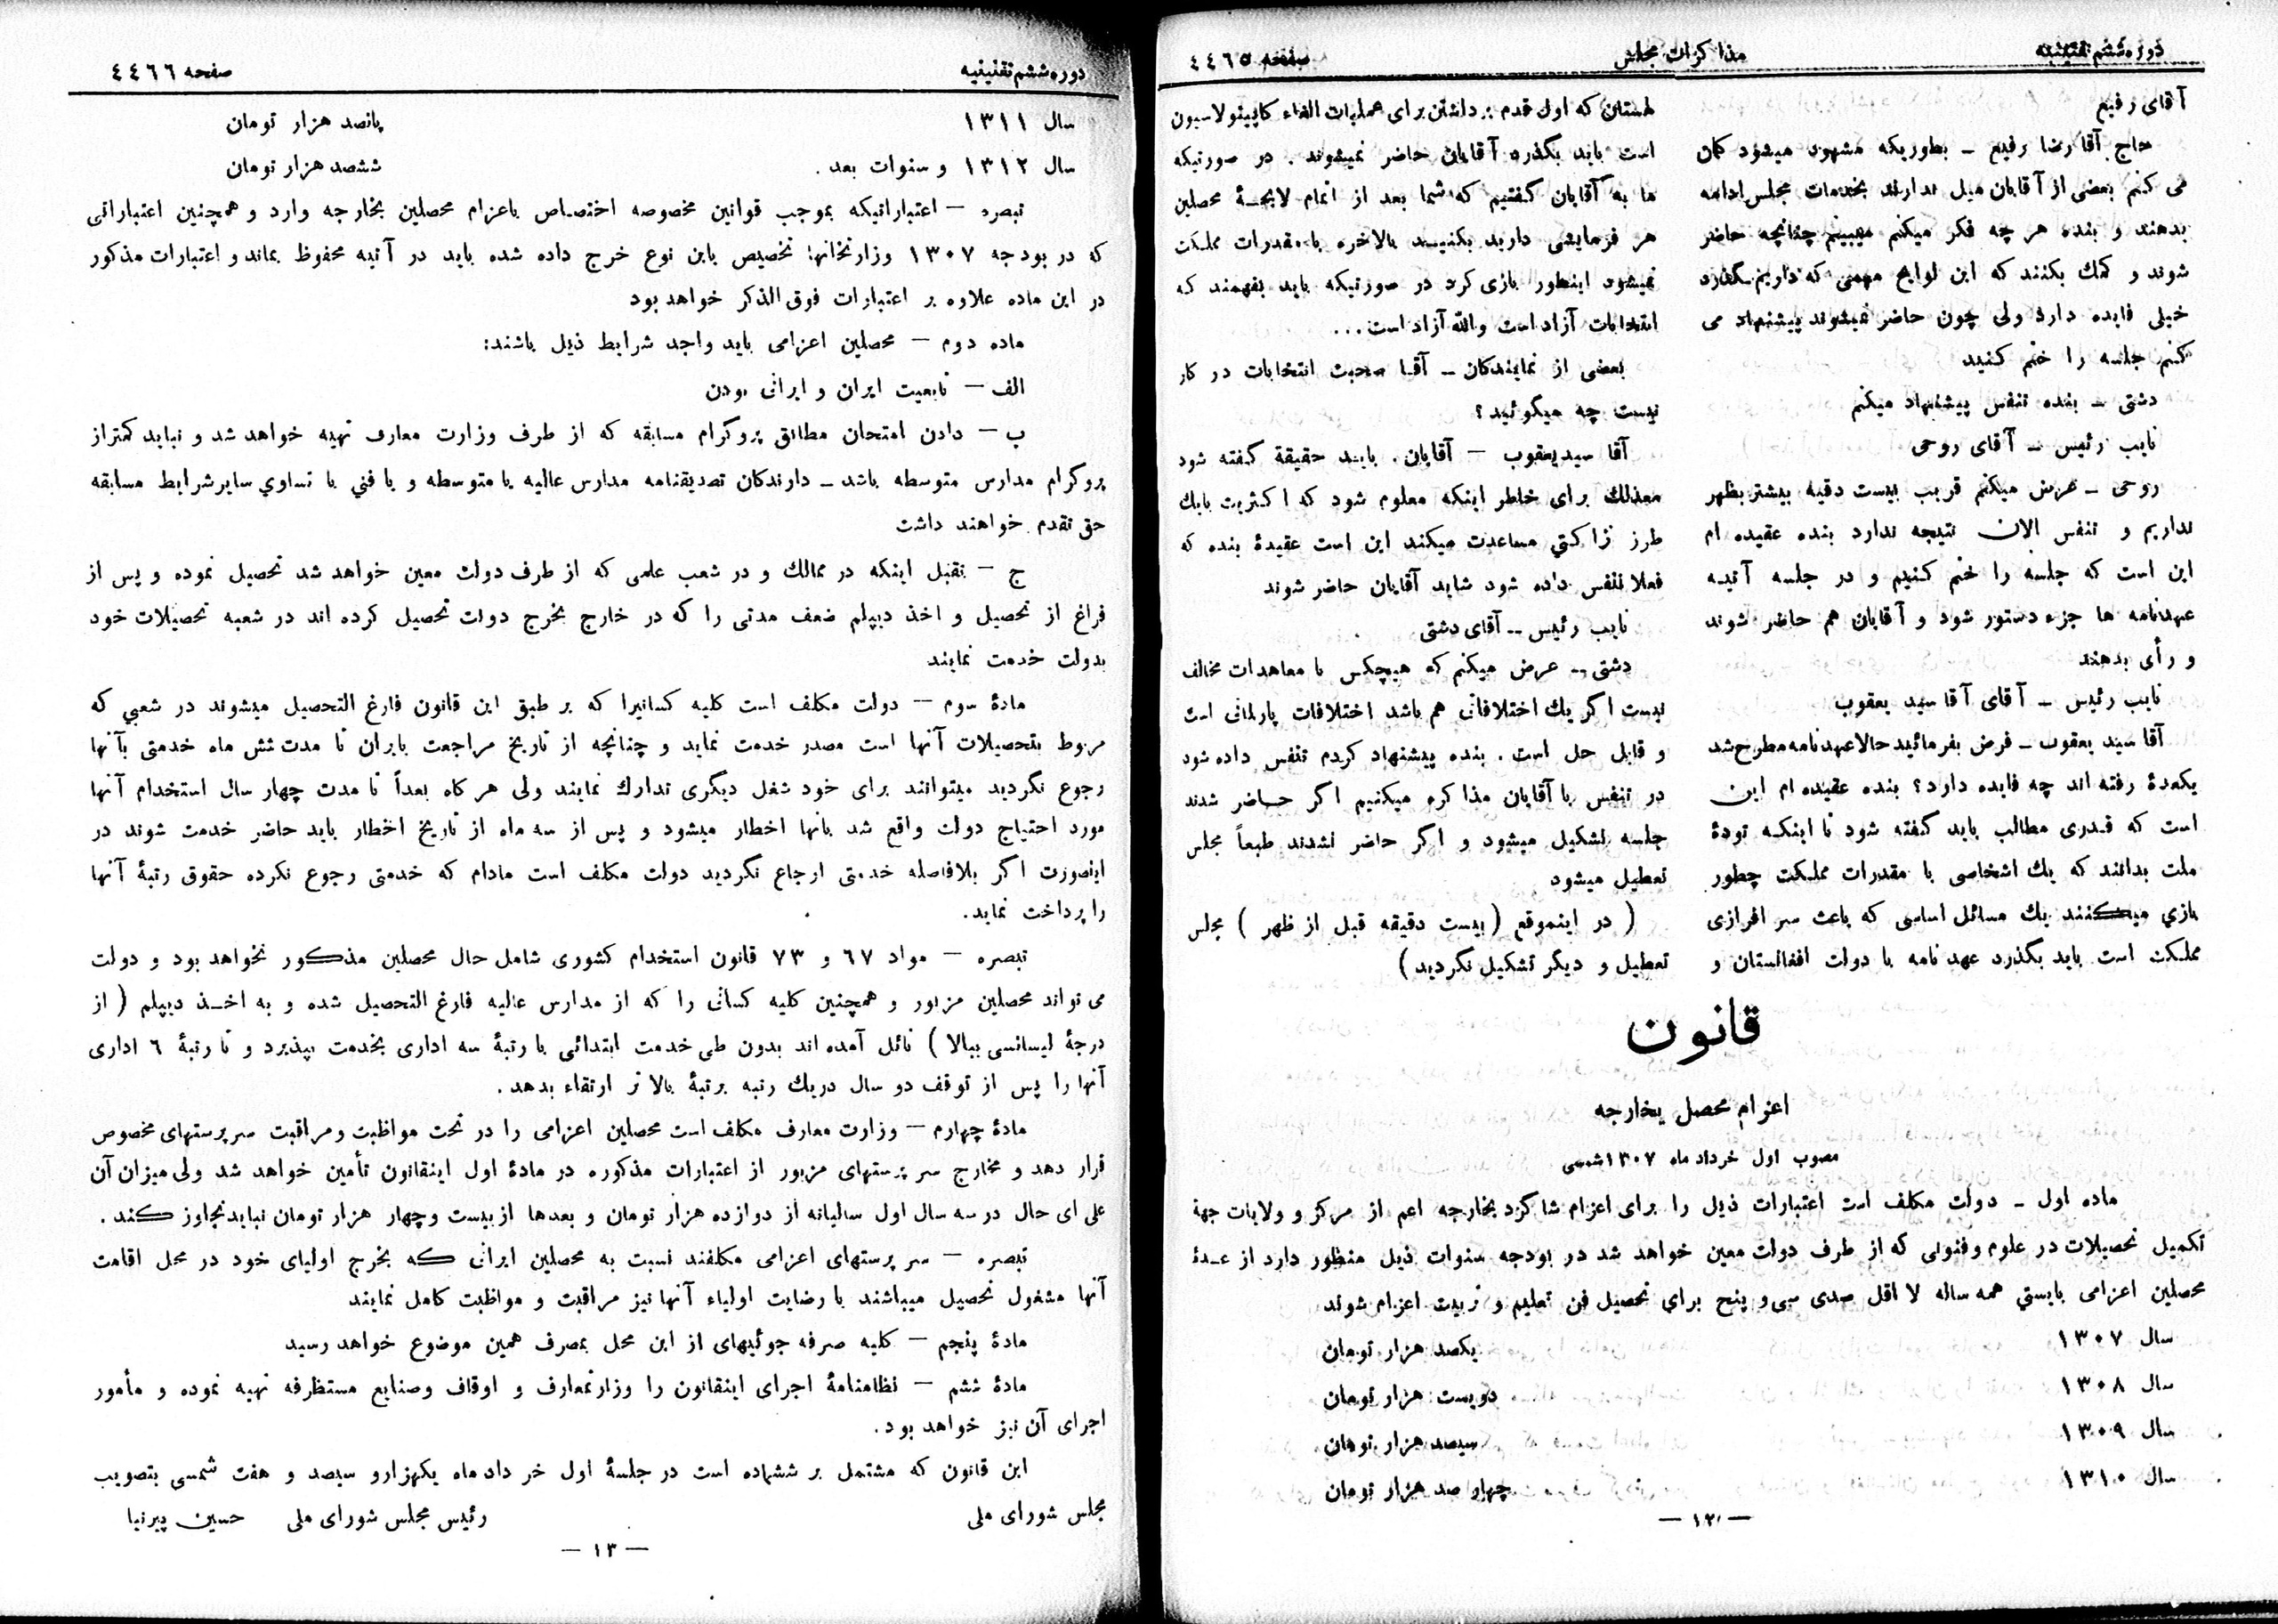 دوره ششم تقنینیه
مذاکرات مجلس
صفحه ٤٤٦٥
آقای رفیع
حاج آقا رضا رفیع – بطوریکه مشهود میشود گمان
می کنم بعضی از آقایان میل ندارند بخدمات مجلس ادامه
بدهند و بنده هر چه فکر میکنم میبینم چنانچه حاضر
شوند و کمك بکنند که این لوایح مهمی که داریم بگذرد
خیلی فایده دارد ولی چون حاضر نمیشوند پیشنهاد می
کنم جلسه را ختم کنید
دشتی – بنده تنفس پیشنهاد میکنم
نایب رئیس – آقای روحی
روحی – عرض میکنم قریب بیست دقیه بیشتر بظهر
نداریم و تنفس الان نتیجه ندارد بنده عقیده ام
این است که جلسه را ختم کنیم و در جلسه آتیه
عهدنامه ها جزء دستور شود و آقایان هم حاضر شوند
و رأی بدهند
نایب رئیس – آقای آقا سید یعقوب
آقا سید یعقوب – فرض بفرمائید حالا عهدنامه مطرح شد
یکعدۀ رفته اند چه فایده دارد؟ بنده عقیده ام این
است که قدری مطالب باید گفته شود تا اینکه تودۀ
ملت بدانند که یك اشخاصی با مقدرات مملکت چطور
بازي میکنند یك مسائل اساسی که باعث سر افرازی
مملکت است باید بگذرد عهد نامه با دولت افغانستان و
لهستان که اول قدم برداشتن برای عملیات الغاء کاپیتولاسیون
است باید بگذرد آقایان حاضر نمیشوند . در صورتیکه
ما به آقایان گفتیم که شما بعد از اتمام لایحۀ محصلین
هر فرمایشی دارید بکنید بالاخره با مقدرات مملکت
نمیشود اینطور بازی کرد در صورتیکه باید بفهمند که
انتخابات آزاد است والله آزاد است ...
بعضی از نمایندگان – آقا صحبت انتخابات در کار
نیست چه میگوئید؟
آقا سید یعقوب – آقایان . بایند حقیقة گفته شود
معذلك برای خاطر اینکه معلوم شود که اکثریت بایك
طرز نزاکتي مساعدت میکند این است عقیدۀ بنده که
فعلا تنفس داده شود شاید آقایان حاضر شوند
نایب رئیس – آقای دشتی
دشتی – عرض میکنم که هیچکس با معاهدات مخالف
نیست اگر یك اختلافاتی هم باشد اختلافات پارلمانی است
و قابل حل است . بنده پیشنهاد کردم تنفس داده شود
در تنفس با آقایان مذاکره میکنیم اگر حاضر شدند
جلسه تشکیل میشود و اگر حاضر نشدند طبعاً مجلس
تعطیل میشود
( در اینموقع ( بیست دقیقه قبل از ظهر ) مجلس
تعطیل و دیگر تشکیل نگردید )
قانون
اعزام محصل بخارجه
مصوب اول خرداد ماه ١٣٠٧ شمسی
ماده اول – دولت مکلف است اعتبارات ذیل را برای اعزام شاگرد بخارجه اعم از مرکز و ولایات جهة
تکمیل تحصیلات در علوم و فنونی که از طرف دولت معین خواهد شد در بودجه سنوات ذیل منظور دارد از عدۀ
محصلین اعزامی بایستي همه ساله لا اقل صدی سی و پنج براي تحصیل فن تعلیم و تربیت اعزام شوند
سال ١٣٠٧ یکصد هزار تومان
سال ١٣٠٨ دویست هزار تومان
سال ١٣٠٩ سیصد هزار تومان
سال ١٣١٠ چهار صد هزار تومان
– ١٢ –
دوره ششم تقنینیه
صفحه ٤٤٦٦
سال ١٣١١ پانصد هزار تومان
سال ١٣١٢ و سنوات بعد . ششصد هزار تومان
تبصره – اعتباراتیکه بموجب قوانین مخصوصه اختصاص باعزام محصلین بخارجه وارد و همچنین اعتباراتی
که در بودجه ١٣٠٧ وزارتخانها تخصیص باین نوع خرج داده شده باید در آتیه محفوظ بماند و اعتبارات مذکور
در این ماده علاوه بر اعتبارات فوق الذکر خواهد بود
ماده دوم – محصلین اعزامی باید واجد شرایط ذیل باشند:
الف – تابعیت ایران و ایرانی بودن
ب – دادن امتحان مطابق پروگرام مسابقه که از طرف وزارت معارف تهیه خواهد شد و نباید کمتر از
پروگرام مدارس متوسطه باشد – دارندگان تصدیقنامه مدارس عالیه یا متوسطه و یا فني با تساوي سایر شرایط مسابقه
حق تقدم خواهند داشت
ج – تقبل اینکه در ممالك و در شعب علمی که از طرف دولت معین خواهد شد تحصیل نموده و پس از
فراغ از تحصیل و اخذ دیپلم ضعف مدتی را که در خارج بخرج دولت تحصیل کرده اند در شعبه تحصیلات خود
بدولت خدمت نمایند
مادۀ سوم – دولت مکلف است کلیه کسانیرا که بر طبق این قانون فارغ التحصیل میشوند در شعبي که
مربوط بتحصیلات آنها است مصدر خدمت نماید و چنانچه از تاریخ مراجعت بایران تا مدت شش ماه خدمتی بآنها
رجوع نگردید میتوانند برای خود شغل دیگری تدارك نمایند ولی هر گاه بعداً تا مدت چهار سال استخدام آنها
مورد احتیاج دولت واقع شد بانها اخطار میشود و پس از سه ماه از تاریخ اخطار باید حاضر خدمت شوند در
اینصورت اگر بلافاصله خدمتی ارجاع نگردید دولت مکلف است مادام که خدمتی رجوع نکرده حقوق رتبۀ آنها
را پرداخت نماید.
تبصره – مواد ٦٧ و ٧٣ قانون استخدام کشوری شامل حال محصلین مذکور نخواهد بود و دولت
می تواند محصلین مزبور و همچنین کلیه کسانی را که از مدارس عالیه فارغ التحصیل شده و به اخذ دیپلم ( از
درجۀ لیسانسی ببالا ) نائل آمده اند بدون طی خدمت ابتدائی با رتبۀ سه اداری بخدمت بپذیرد و تا رتبۀ ٦ اداری
آنها را پس از توقف دو سال در یك رتبه برتبۀ بالا تر ارتقاء بدهد .
مادۀ چهارم – وزارت معارف مکلف است محصلین اعزامی را در تحت مواظبت و مراقبت سرپرستهای مخصوص
قرار دهد و مخارج سر پرستهای مزبور از اعتبارات مذکوره در مادۀ اول اینقانون تأمین خواهد شد ولی میزان آن
علی ای حال در سه سال اول سالیانه از دوازده هزار تومان و بعدها از بیست و چهار هزار تومان نباید تجاوز کند .
تبصره – سر پرستهای اعزامی مکلفند نسبت به محصلین ایرانی که بخرج اولیای خود در محل اقامت
آنها مشغول تحصیل میباشند با رضایت اولیاء آنها نیز مراقبت و مواظبت کامل نمایند
مادۀ پنجم – کلیه صرفه جوئیهای از این محل بمصرف همین موضوع خواهد رسید
مادۀ ششم – نظامنامۀ اجرای اینقانون را وزارتمعارف و اوقاف و صنایع مستظرفه تهیه نموده و مأمور
اجرای آن نیز خواهد بود .
این قانون که مشتمل بر ششماده است در جلسۀ اول خرداد ماه یکهزارو سیصد و هفت شمسی بتصویب
مجلس شورای ملی رئیس مجلس شورای ملی حسین پیرنیا
– ١٣ –